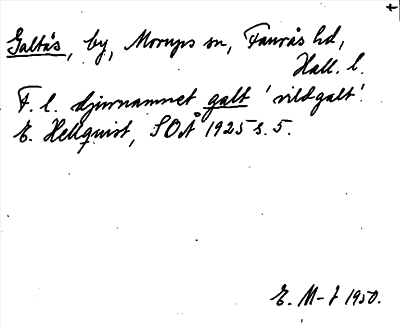 +
Galtås, by, Morups sn, Faurås hd,
Hall. l.
F. l. djurnamnet galt 'vildgalt'.
E. Hellquist, SOÅ 1925 s. 5.
E. M-J 1950.